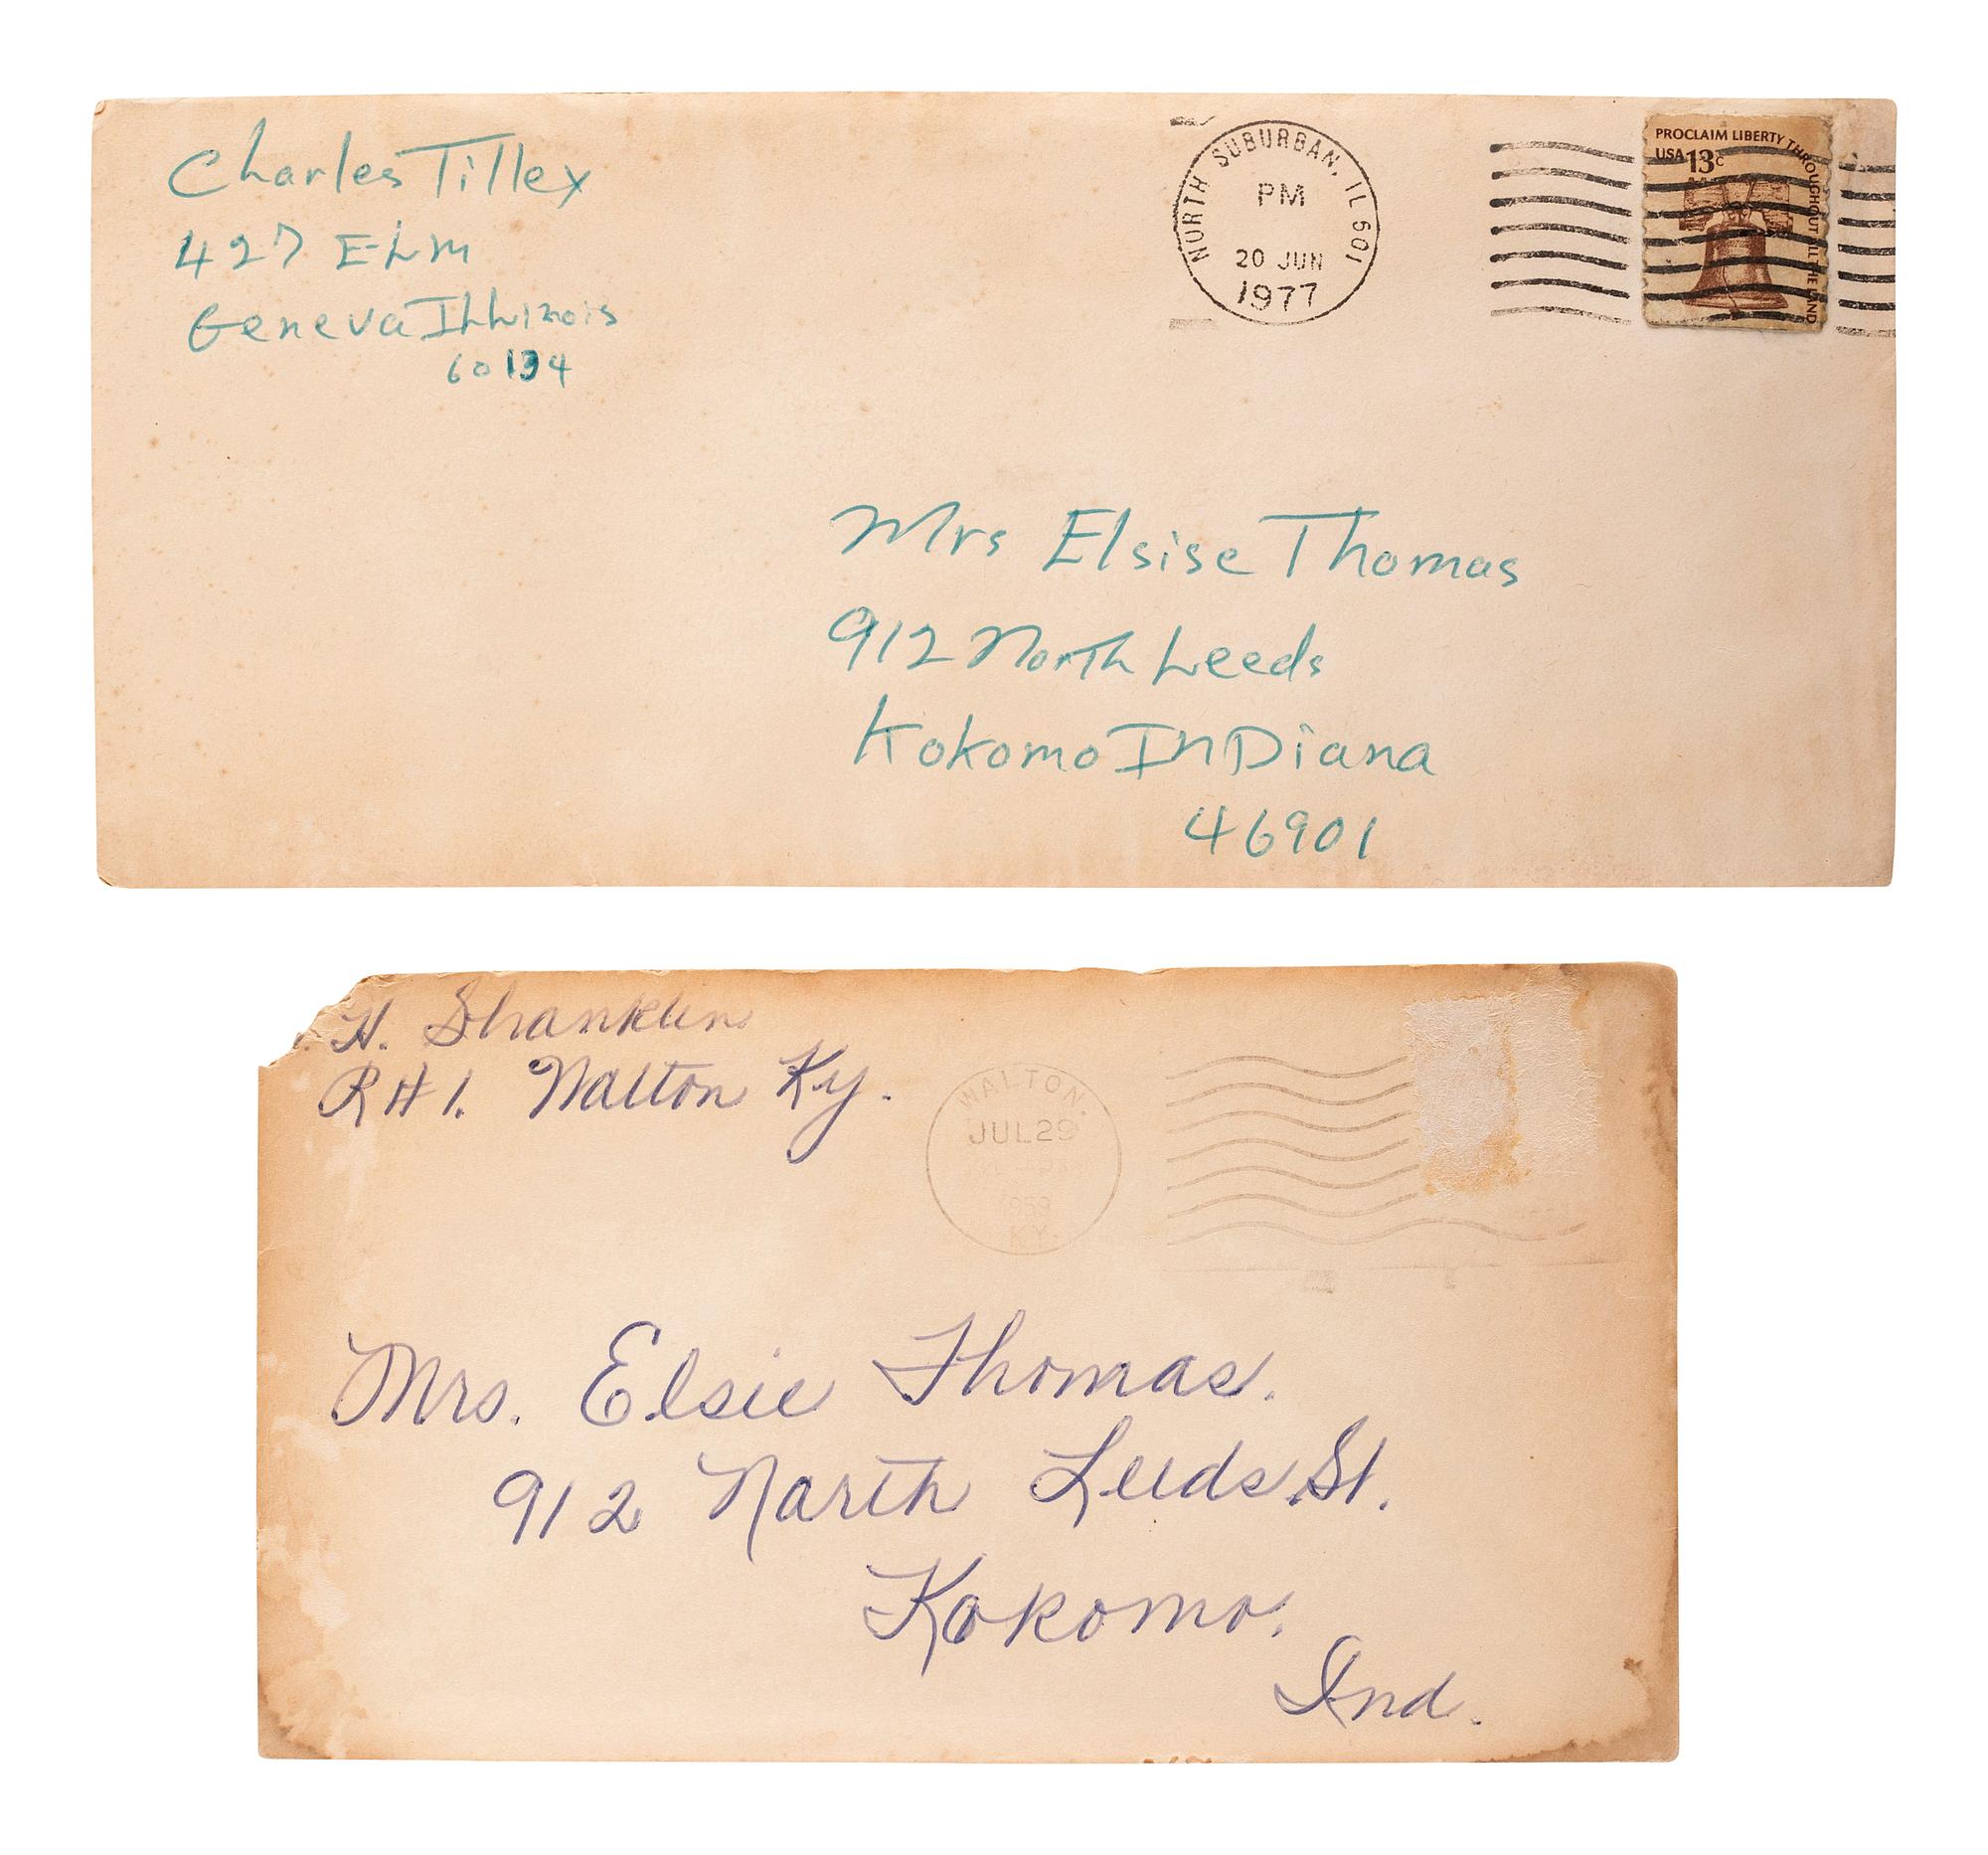 Charles Tilley
427 ELm
Geneva ILLinois
60134
NORTH SUBURBAN, IL 601
PM
20 JUN
1977
PROCLAIM LIBERTY THROUGHOUT ALL THE LAND
USA 13c
Mrs Elsise Thomas
912 North Leeds
Kokomo InDiana
46901
H. Shanklin
R#1. Walton Ky.
WALTON.
JUL 29
1959
KY.
Mrs. Elsie Thomas.
912 North Leeds St.
Kokomo.
Ind.